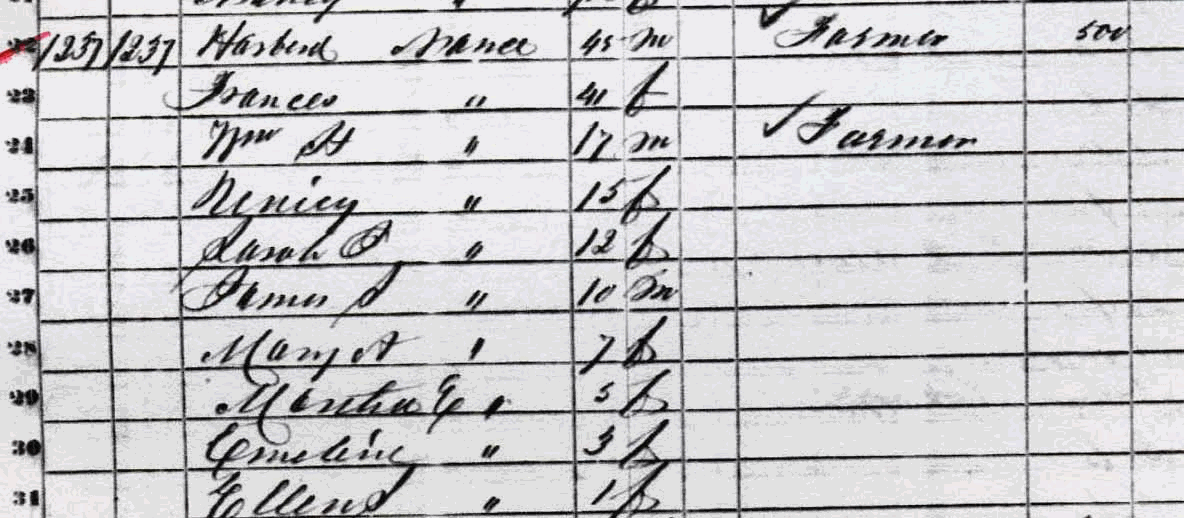 22 1237 1237 Harberd Nance 45 m Farmer 500
23 Frances " 41 f
24 Wm H " 17 m Farmer
25 " 15 f
26 Sarah P " 12 f
27 James S " 10 m
28 Mary A " 7 f
29 Martha E " 5 f
30 Emeline " 3 f
31 Ellen S " 1 f